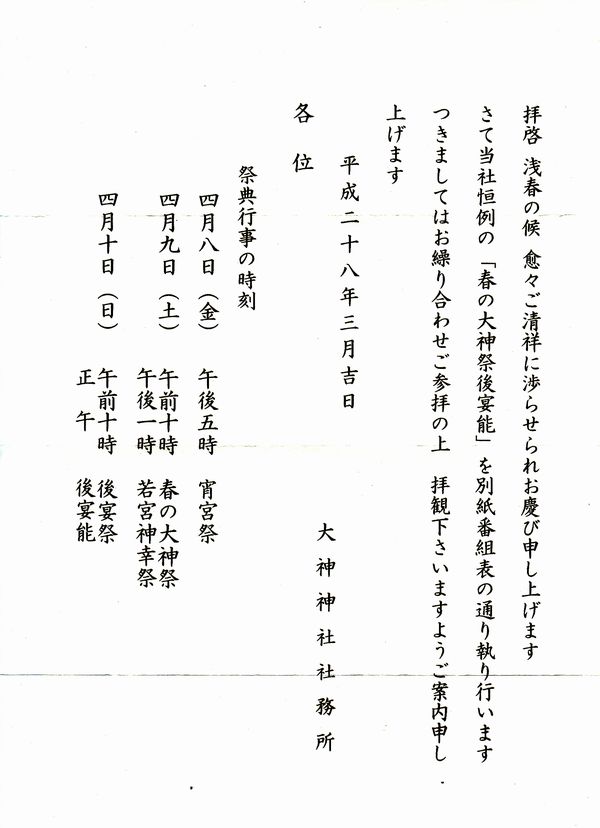 拝啓 浅春の候 愈々ご清祥に渉らせられお慶び申し上げます
さて当社恒例の「春の大神祭後宴能」を別紙番組表の通り執り行います
つきましてはお繰り合わせご参拝の上 拝観下さいますようご案内申し
上げます
平成二十八年三月吉日
大神神社社務所
各位
祭典行事の時刻
四月八日（金） 午後五時 宵宮祭
四月九日（土） 午前十時 春の大神祭
午後一時 若宮神幸祭
四月十日（日） 午前十時 後宴祭
正午 後宴能